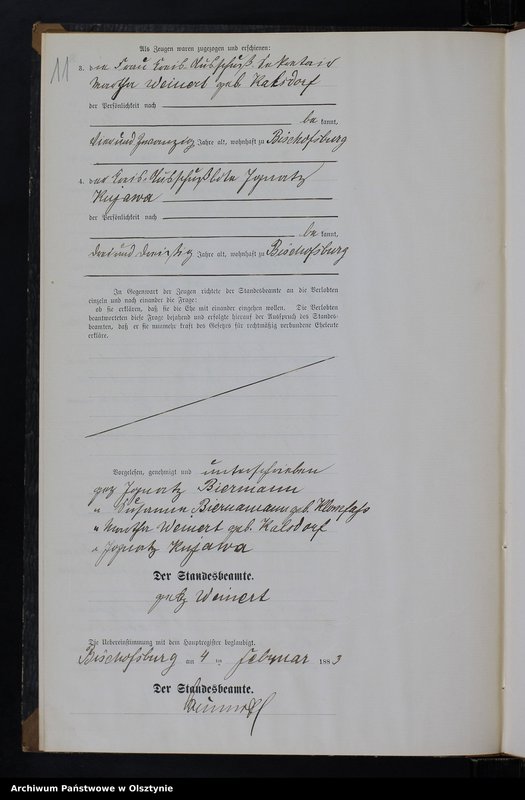 11
Als Zeugen waren zugezogen und erschienen:
3. die Frau Kreis-Ausschuß-Sekretair
Martha Weinert geb. Kalsdorf
der Persönlichkeit nach
be kannt,
vierundzwanzig Jahre alt, wohnhaft zu Bischofsburg
4. der Kreis-Ausschußbote Ignatz
Kujawa
der Persönlichkeit nach
be kannt,
dreiunddreißig Jahre alt, wohnhaft zu Bischofsburg
In Gegenwart der Zeugen richtete der Standesbeamte an die Verlobten
einzeln und nach einander die Frage:
ob sie erklären, daß sie die Ehe mit einander eingehen wollen. Die Verlobten
beantworteten diese Frage bejahend und erfolgte hierauf der Ausspruch des Standes-
beamten, daß er sie nunmehr kraft des Gesetzes für rechtmäßig verbundene Eheleute
erkläre.
Vorgelesen, genehmigt und unterschrieben
gez Ignatz Biermann
" Susanna Biermann geb. Klomfass
" Martha Weinert geb. Kalsdorf
" Ignatz Kujawa
Der Standesbeamte.
gez Weinert
Die Uebereinstimmung mit dem Hauptregister beglaubigt.
Bischofsburg am 4 ten Februar 1883
Der Standesbeamte.
Weinert
Archiwum Państwowe w Olsztynie